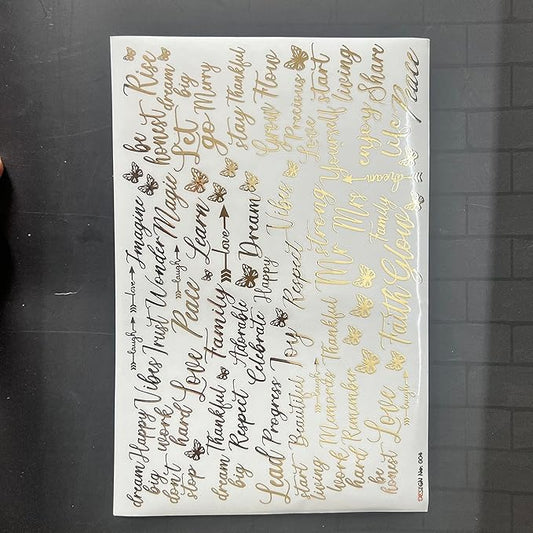 be honest
Rise
dream big
Let go
Merry
stay
Thankful
Grow
Flow
Precious
Love
start
Yourself
living
enjoy
Share
life
Peace
Imagine
love
laugh
Vibes
Trust
Wonder
Magic
laugh
Love
Peace
Learn
Love
Family
Dream
Happy
Vibes
Respect
strong
Mr
Mrs
dream
Family
Faith
Grow
dream
big
Happy
Vibes
work
hard
don't
stop
Love
dream
big
Thankful
Respect
Adorable
Celebrate
Joy
Lead
Progress
start
living
Beautiful
laugh
Memories
Thankful
work
hard
Remember
be
honest
Love
laugh
DESIGN No: 004